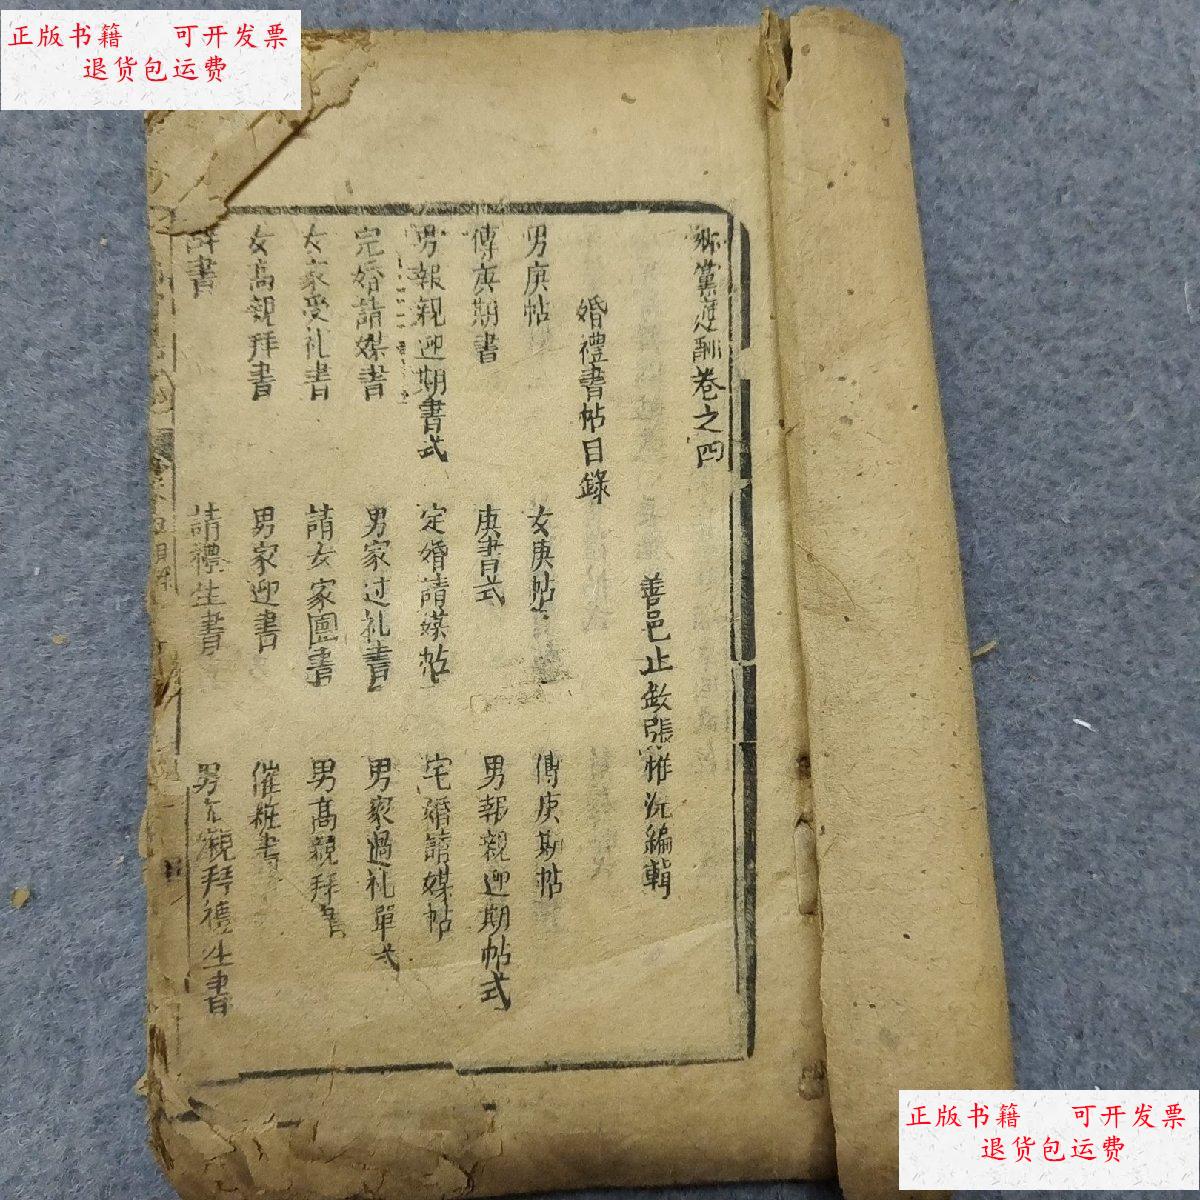 正版书籍 可开发票
退货包运费
鄉黨應酬卷之四
善邑止敬張雅沅編輯
婚禮書帖目錄
男庚帖 女庚帖 傳庚期帖
傳庚期書 庚書式 男報親迎期帖式
男報親迎期書式 定婚請媒帖 完婚請媒帖
完婚請媒書 男家过礼書 男家過礼單式
女家受礼書 請女家團書 男高親拜書
女高親拜書 男家迎書 催粧書
書 請禮生書 男親拜禮生書
正版书籍 可开发票
退货包运费